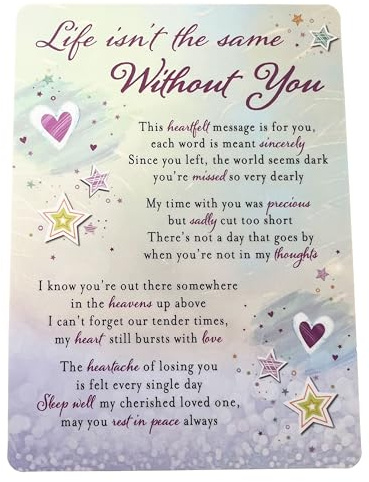 Life isn't the same
Without You
This heartfelt message is for you,
each word is meant sincerely
Since you left, the world seems dark
you're missed so very dearly
My time with you was precious
but sadly cut too short
There's not a day that goes by
when you're not in my thoughts
I know you're out there somewhere
in the heavens up above
I can't forget our tender times,
my heart still bursts with love
The heartache of losing you
is felt every single day
Sleep well my cherished loved one,
may you rest in peace always